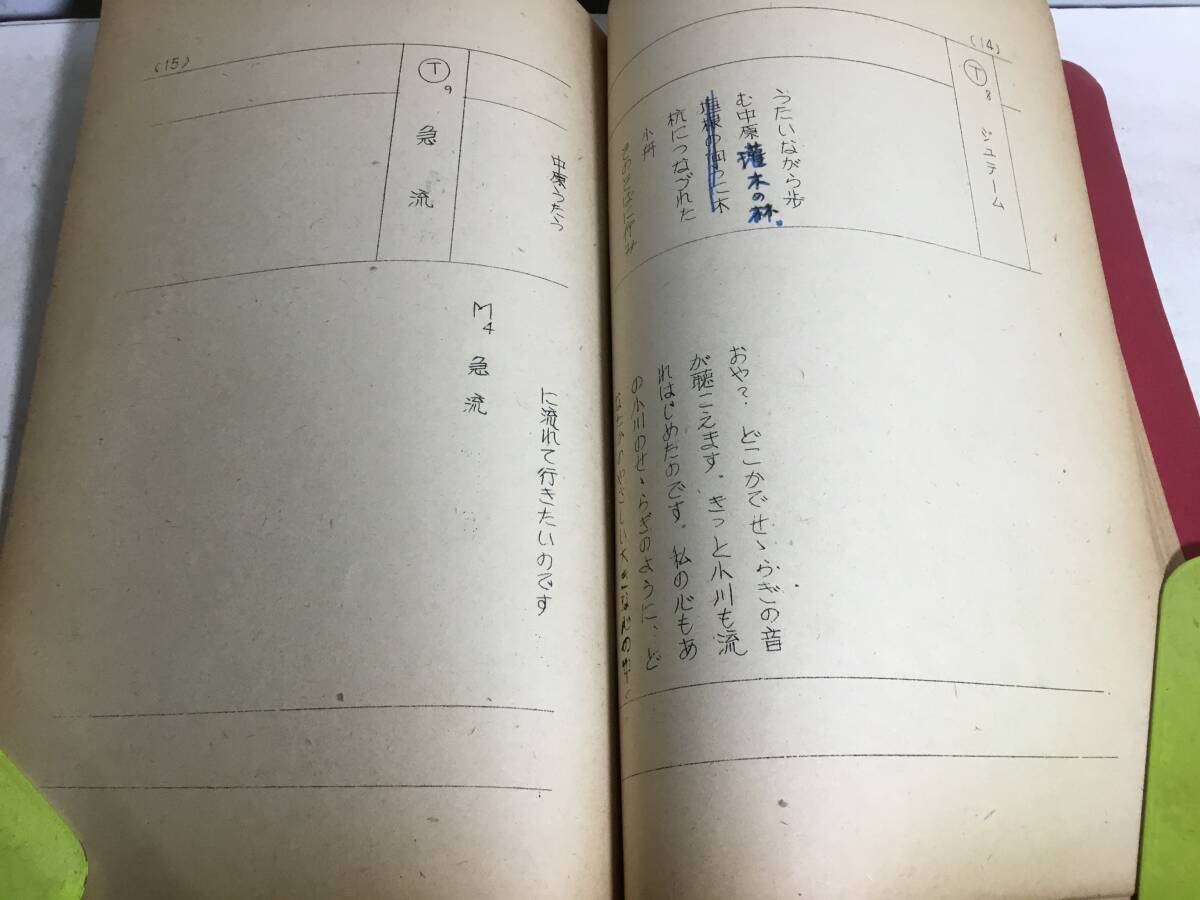 (14)
Ⓣ8 ジュテーム
うたいながら歩
む中原 灌木の林。
の
に木
杭につながれた
小舟
そのそばに
おや？ どこかでせゝらぎの音
が聴こえます。きっと小川も流
れはじめたのです。私の心もあ
の小川のせゝらぎのように、ど
なたかのやさしい大きな心の中
中原うたう
に流れて行きたいのです
M4 急流
Ⓣ9 急流
(15)